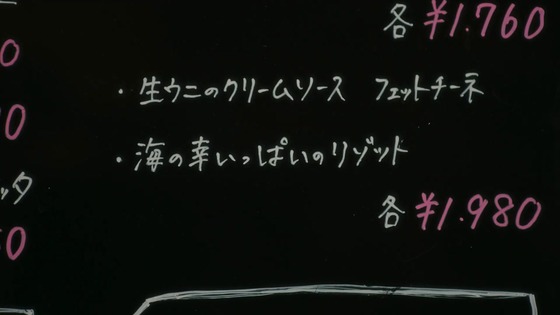 各 ¥1.760
・生ウニのクリームソース フェットチーネ
・海の幸いっぱいのリゾット
ッタ
各 ¥1.980